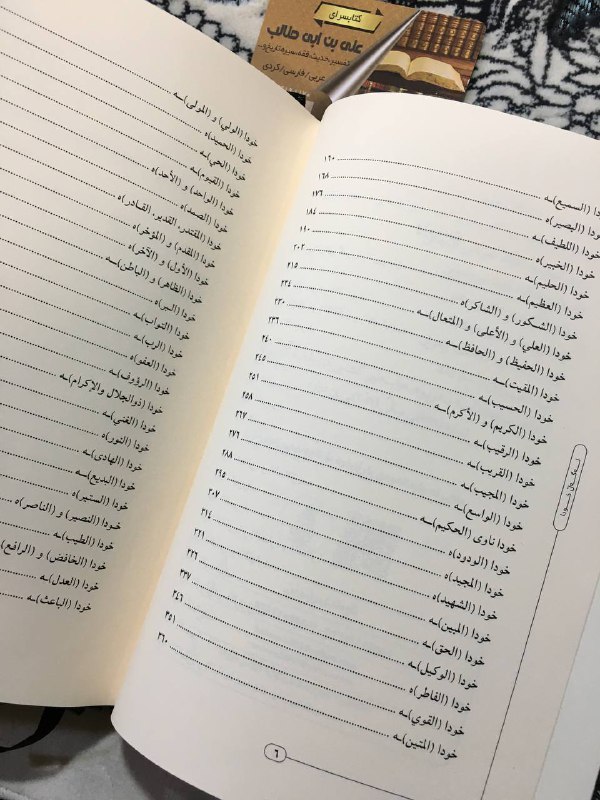 کتابسرای
علی بن ابی طالب
تفسیر،حدیث،فقه،سیره،تاریخ و...
عربی/فارسی/کردی
خودا (السميع)ـه ١٦٠
خودا (البصير)ه ١٦٨
خودا (اللطيف)ـه ١٧٦
خودا (الخبير)ه ١٨٤
خودا (الحليم)ـه ١٩٠
خودا (العظيم)ـه ٢٠٢
خودا (الشكور) و (الشاكر)ه ٢١٥
خودا (العلي) و (الأعلى) و (المتعال)ـه ٢٢٤
خودا (الحفيظ) و (الحافظ)ـه ٢٣٠
خودا (المقيت)ـه ٢٣٦
خودا (الحسيب)ـه ٢٤٠
خودا (الكريم) و (الأكرم)ـه ٢٤٥
خودا (الرقيب)ـه ٢٥١
خودا (القريب)ـه ٢٥٨
خودا (المجيب)ـه ٢٦٧
خودا (الواسع)ـه ٢٧٦
ناوی (الحكيم)ـه ٢٨٨
خودا (الودود)ه ٢٩٥
خودا (المجيد)ه ٣٠٧
خودا (الشهيد)ه ٣١٤
خودا (المبين)ـه ٣٢١
خودا (الحق)ـه ٣٢٦
خودا (الوكيل)ـه ٣٣٧
خودا (الفاطر)ه ٣٤٦
خودا (القوي)ـه ٣٥١
خودا (المتين)ـه ٣٦٠
٦
خودا (الولي) و (المولى)ـه
خودا (الحميد)ه
خودا (الحي)ـه
خودا (القيوم)ـه
خودا (الواحد) و (الأحد)ه
خودا (الصمد)ه
خودا (المقتدر، القدير، القـادر)ه
خودا (المقدم) و (المؤخر)ه
خودا (الأول) و (الآخر)ه
خودا (الظاهر) و (الباطن)ـه
خودا (البـر)ه
خودا (التواب)ـه
خودا (الرب)ـه
خودا (العفو)ه
خودا (الرؤوف)ـه
خودا (ذوالجلال والإكرام)ـه
خودا (الغني)ـه
خودا (الهادی)ـه
خودا (النور)ه
خودا (البديع)ـه
خودا (الستير)ه
خودا (النصير) و (الناصر)ه
خودا (الطيب)ـه
خودا (الخافض) و (الرافع)
خودا (العدل)ـه
خودا (الباعث)ـه